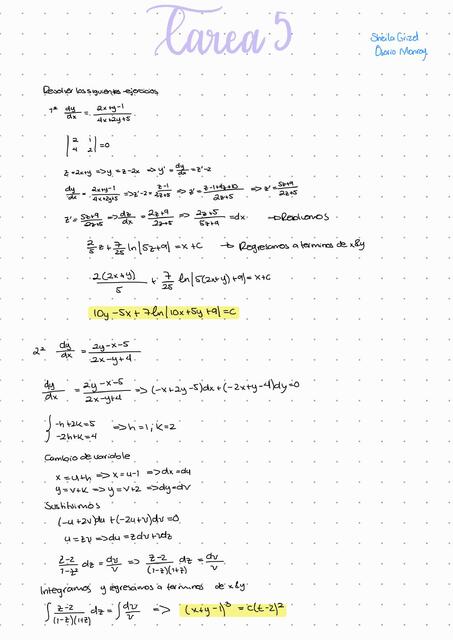 Tarea 5
Sheila Gizel
Osorio Monroy
Resolver los siguientes ejercicios
1° dy/dx = 2x+y-1/4x+2y+5
|2 1; 4 2| = 0
z = 2x+y => y = z-2x => y' = dy/dx = z'-2
dy/dx = 2x+y-1/4x+2y+5 => z'-2 = z-1/2z+5 => z' = z-1+4z+10/2z+5 => z' = 5z+9/2z+5
z' = 5z+9/2z+5 => dz/dx = 2z+9/2z+5 => 2z+5/5z+9 = dx →
2/5 z + 7/25 ln|5z+9| = x+C → Regresamos a terminos de x&y
2(2x+y)/5 + 7/25 ln|5(2x+y)+9| = x+C
10y-5x+7ln|10x+5y+9| = C
2° dy/dx = 2y-x-5/2x-y+4
dy/dx = 2y-x-5/2x-y+4 => (-x+2y-5)dx+(-2x+y-4)dy=0
{-h+2k=5
-2h+k=4 => h=1, k=2
Cambio de variable
x=u+h => x=u-1 => dx=du
y=v+k => y=v+2 => dy=dv
Sustituimos
(-u+2v)du+(-2u+v)dv=0
u=zv => du=zdv+vdz
2-z/1-z² dz = dv/v => z-2/(1-z)(1+z) = dv/v
Integramos y regresamos a terminos de x&y:
∫ z-2/(1-z)(1+z) dz = ∫ dv/v => (x+y-1)³ = c(t-2)²